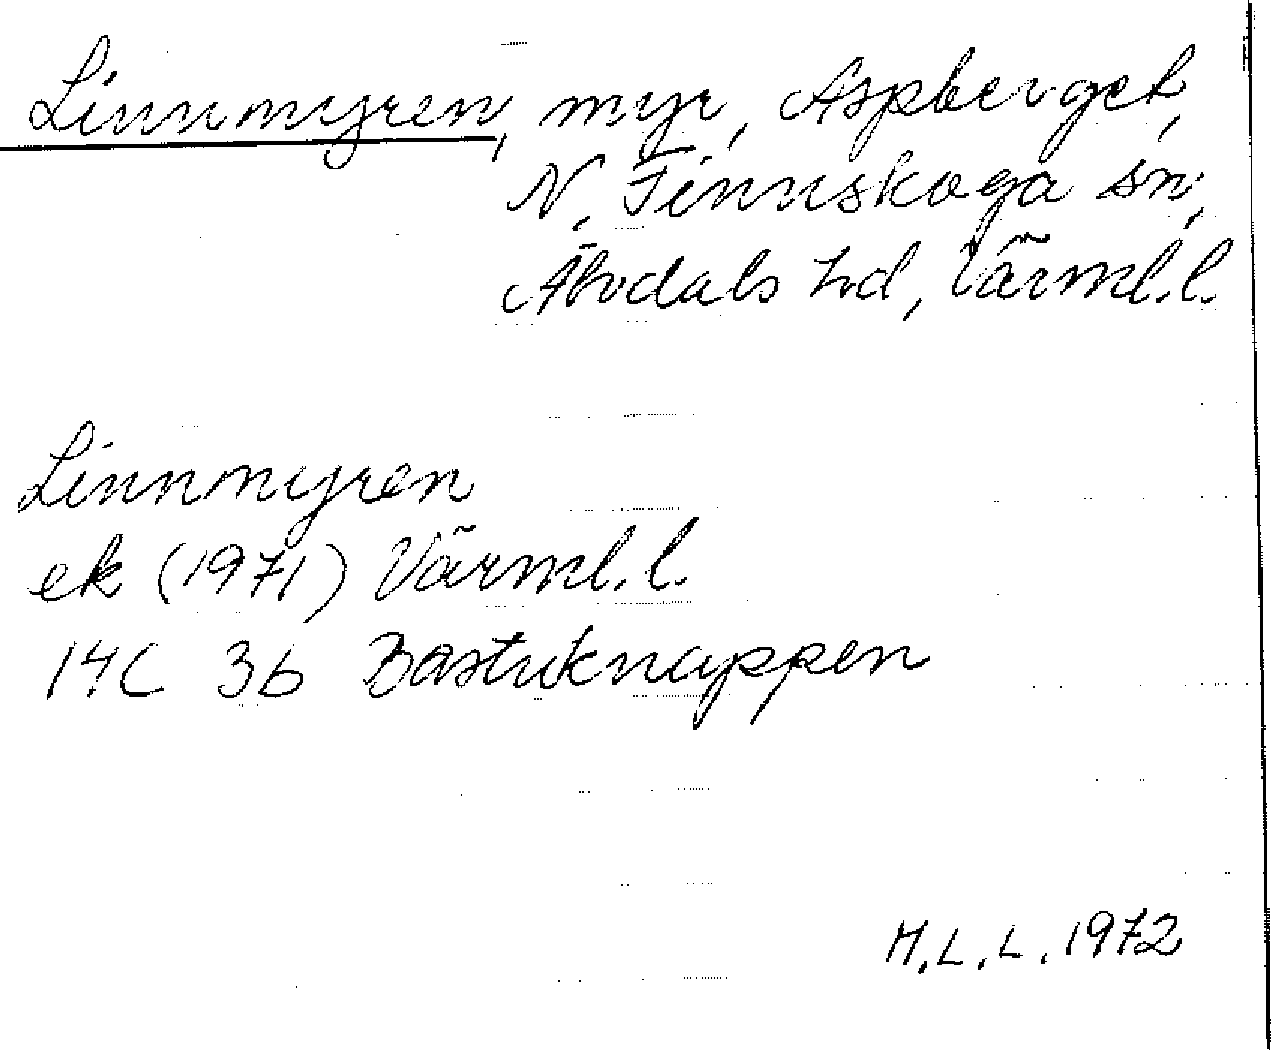 Linnmyren, myr, Aspberget,
N. Finnskoga sn,
Älvdals hd, Värml.l.
Linnmyren
ek (1971) Värml.l.
14C 3b Bastuknappen
M.L.L. 1972